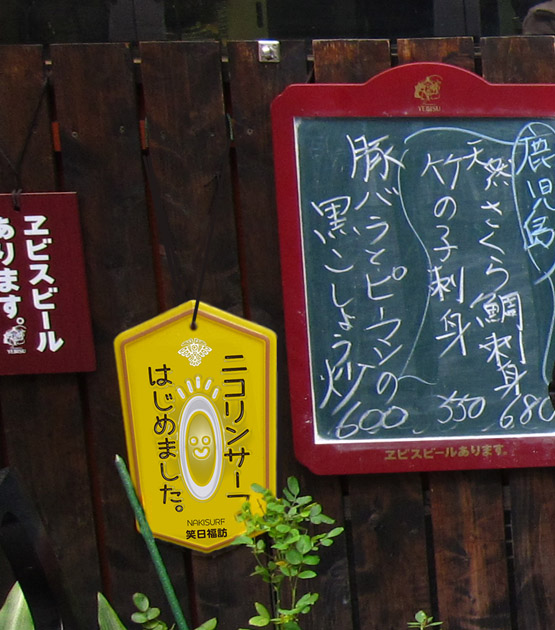 ヱビスビール
あります。
YEBISU
ニコリンサーフ
はじめました。
NAKISURF
笑日福訪
YEBISU
鹿児島
天然さくら鯛刺身 680
竹の子刺身 550
豚バラとピーマンの
黒こしょう炒 600
ヱビスビールあります。